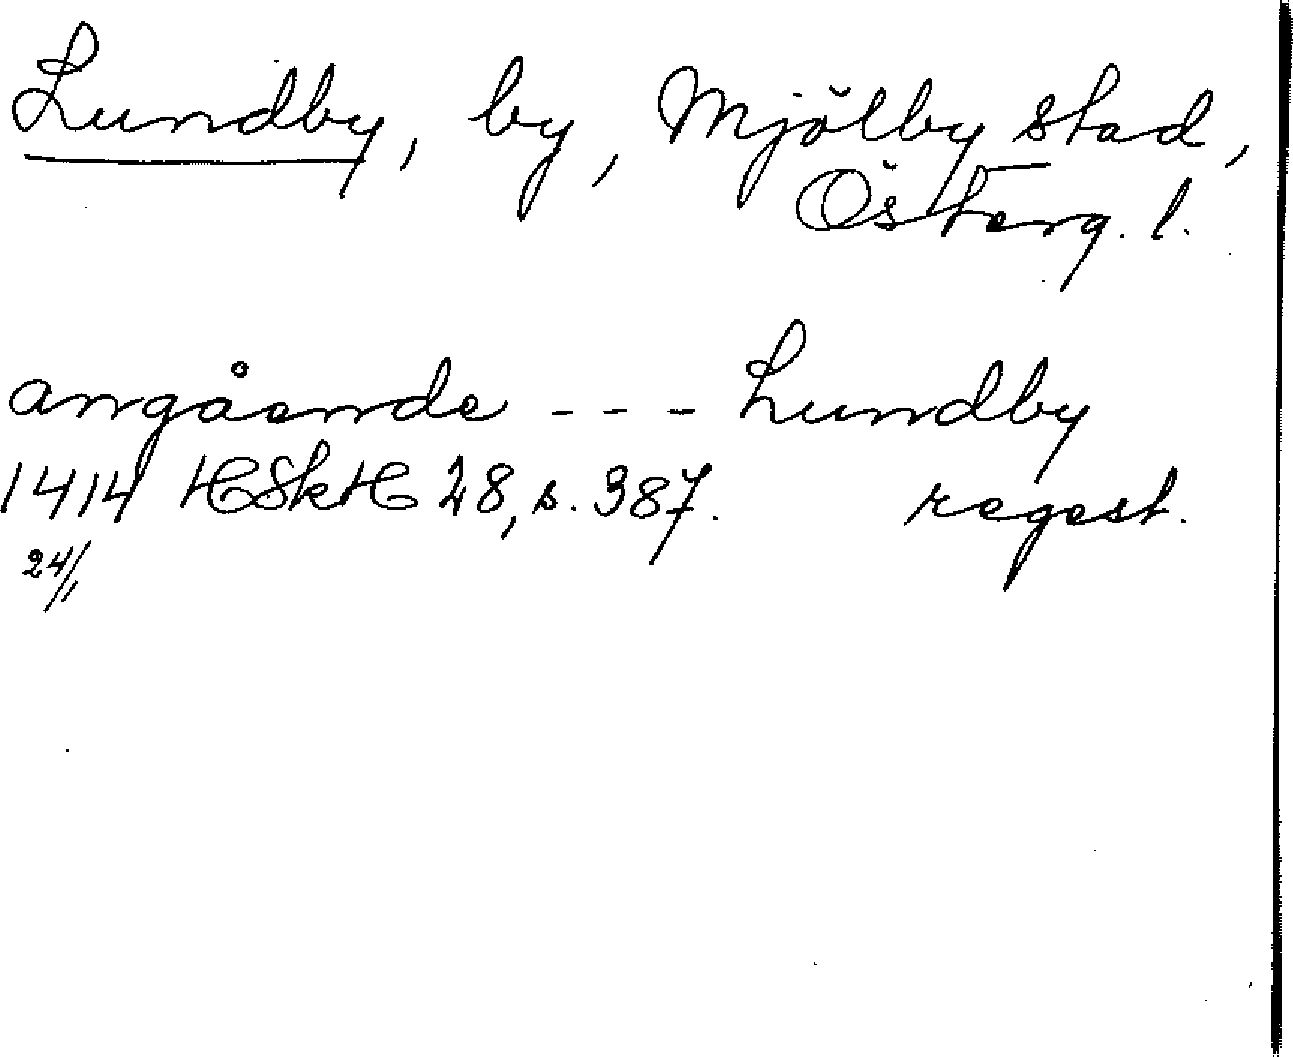 Lundby, by, Mjölby stad,
Österg. l.
angående - - - Lundby
1414 HSkH 28, s. 387. regest.
24/1